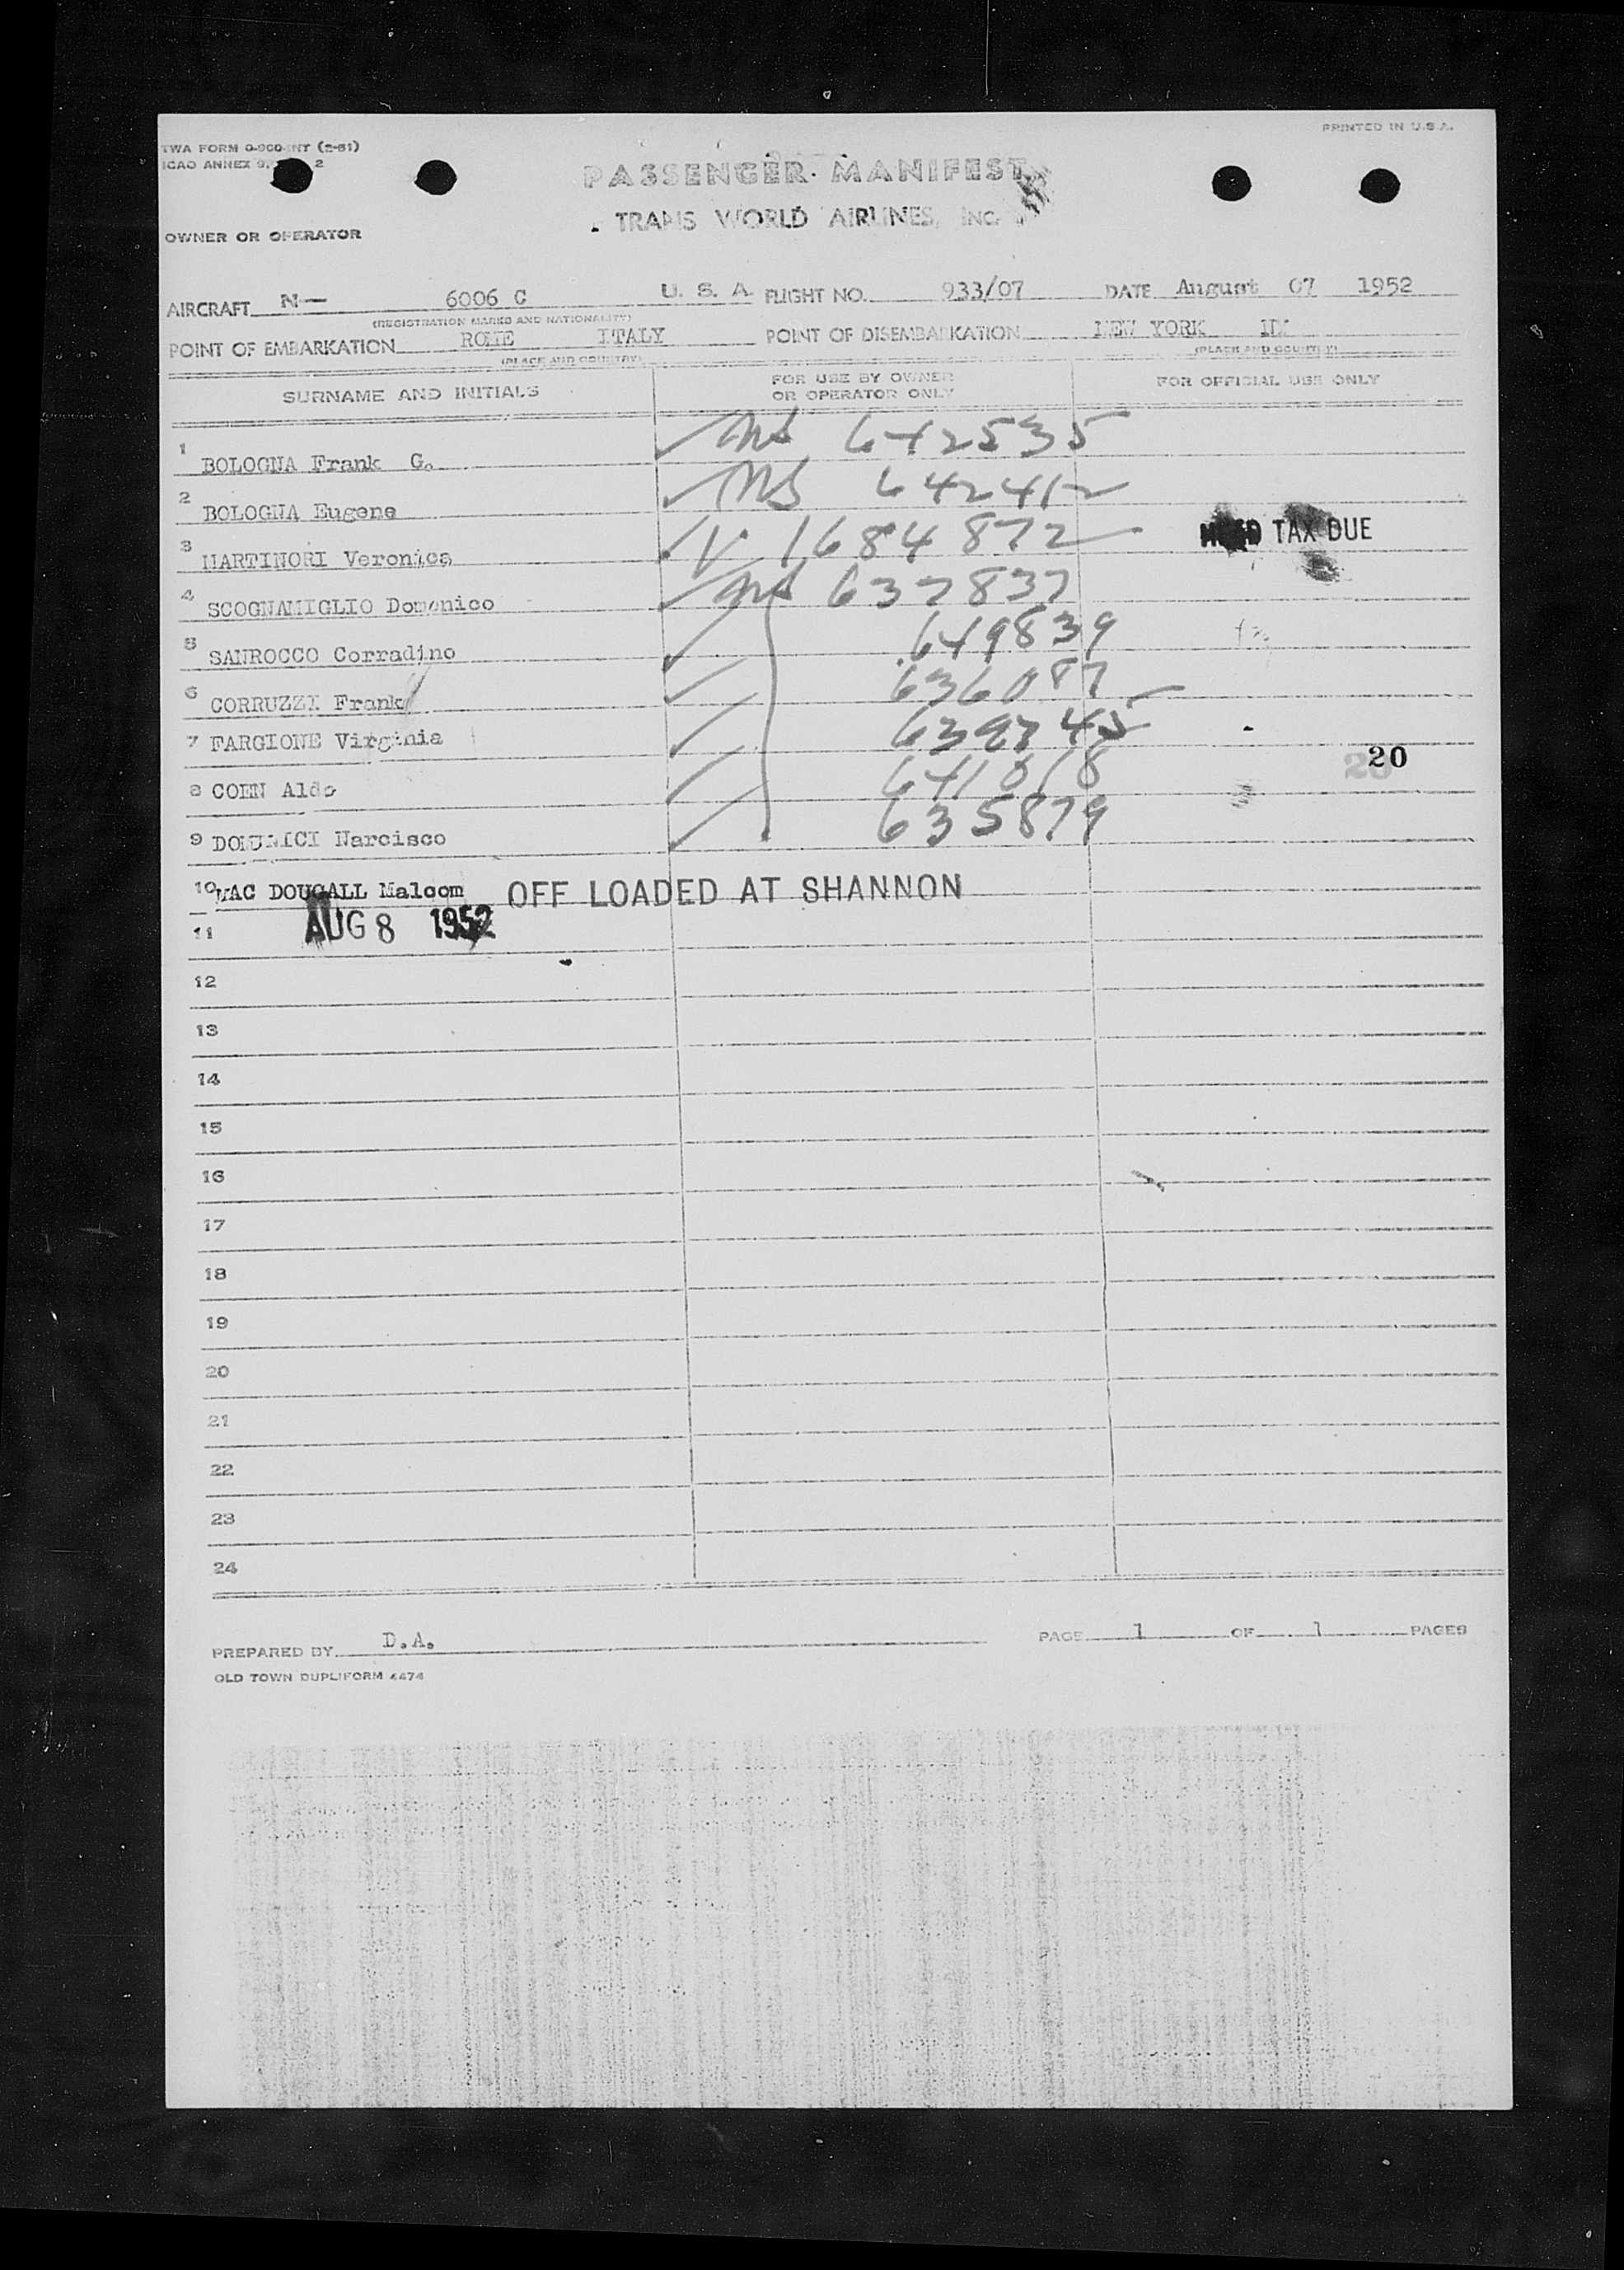 TWA FORM 0-900-INT (2-51)
PRINTED IN U.S.A.
ICAO ANNEX 9, 2
PASSENGER MANIFEST
TRANS WORLD AIRLINES, INC.
OWNER OR OPERATOR
AIRCRAFT N— 6006 C U. S. A. FLIGHT NO. 933/07 DATE August 07 1952
(REGISTRATION MARKS AND NATIONALITY)
POINT OF EMBARKATION ROME ITALY POINT OF DISEMBARKATION NEW YORK
(PLACE AND COUNTRY) (PLACE AND COUNTRY)
SURNAME AND INITIALS FOR USE BY OWNER OR OPERATOR ONLY FOR OFFICIAL USE ONLY
1 BOLOGNA Frank G. 642535
2 BOLOGNA Eugene 642412
3 MARTINORI Veronica V. 1684872 HEAD TAX DUE
4 SCOGNAMIGLIO Domenico 637837
5 SANROCCO Corradino 649839
6 CORRUZZI Frank 636087
7 FARGIONE Virginia 639745
8 COEN Aldo 641018 20
9 DOMINICI Narcisco 635879
10 MAC DOUGALL Malcom OFF LOADED AT SHANNON
11 AUG 8 1952
12
13
14
15
16
17
18
19
20
21
22
23
24
PREPARED BY D.A. PAGE 1 OF 1 PAGES
OLD TOWN DUPLIFORM 4474